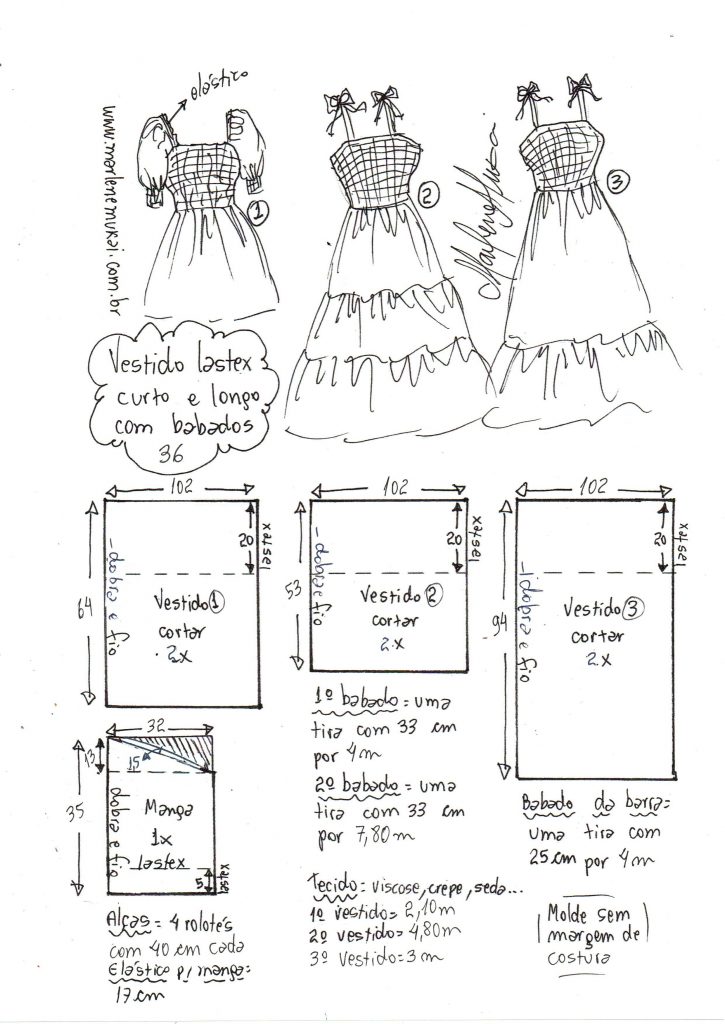 elástico
www.marlenemukai.com.br
1
2
Marlene Mukai
3
Vestido lastex
curto e longo
com babados
36
102
20
lastex
64
dobra e fio
Vestido 1
cortar
2x
102
20
lastex
53
dobra e fio
Vestido 2
cortar
2x
102
20
lastex
94
dobra e fio
Vestido 3
cortar
2x
32
13
15
35
dobra e fio
Manga
1x
lastex
5
lastex
Alças = 4 rolotés
com 40 cm cada
Elástico p/ manga:
17 cm
1º babado = uma
tira com 33 cm
por 4m
2º babado = uma
tira com 33 cm
por 7,80m
Tecido = viscose, crepe, seda...
1º vestido = 2,10m
2º vestido = 4,80m
3º vestido = 3m
Babado da barra =
uma tira com
25cm por 4m
Molde sem
margem de
costura